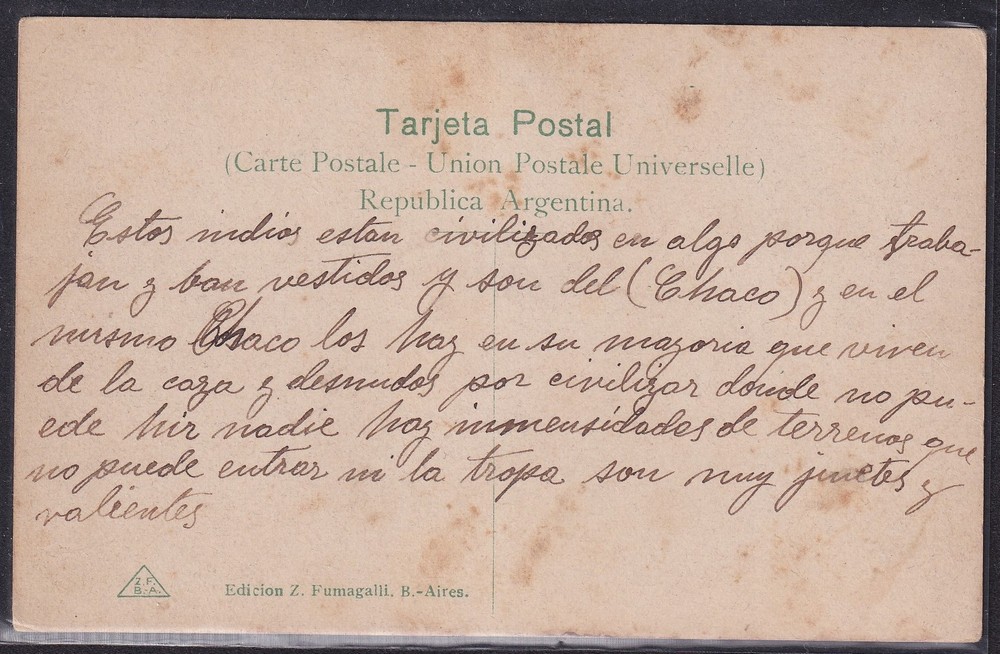 Tarjeta Postal
(Carte Postale - Union Postale Universelle)
Republica Argentina.
Estos indios estan civilizados en algo porque traba-
jan y ban vestidos y son del (Chaco) y en el
mismo Chaco los hay en su mayoria que viven
de la caza y desnudos por civilizar donde no pu-
ede hir nadie hay inmensidades de terrenos que
no puede entrar ni la tropa son muy jinetes y
valientes
Z.F.
B.-A.
Edicion Z. Fumagalli. B.-Aires.